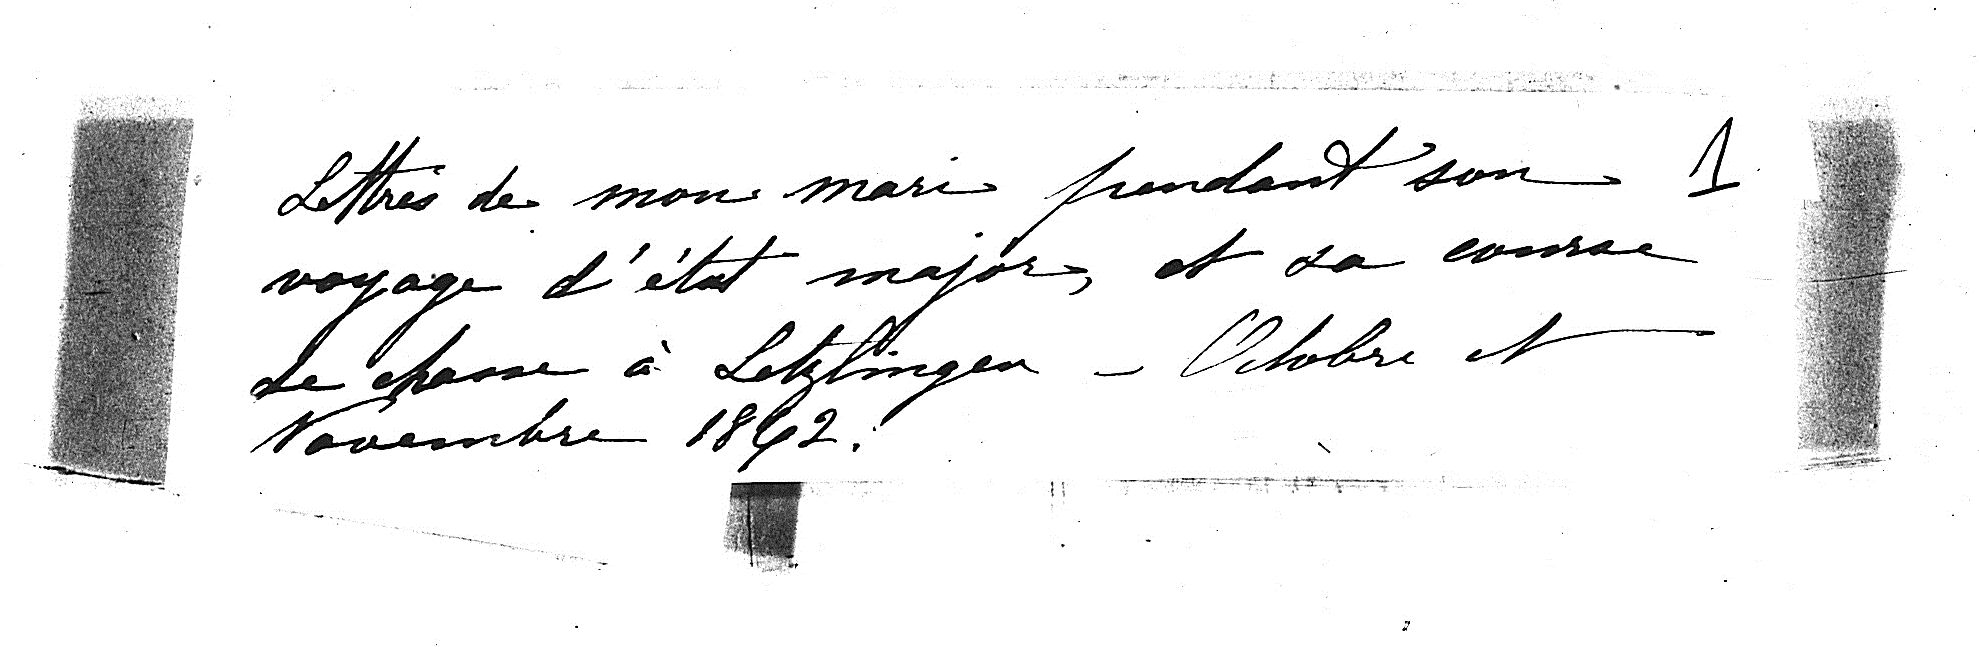 Lettres de mon mari pendant son 1
voyage d'état major, et sa course
de chasse à Letzlingen – Octobre et
Novembre 1862.